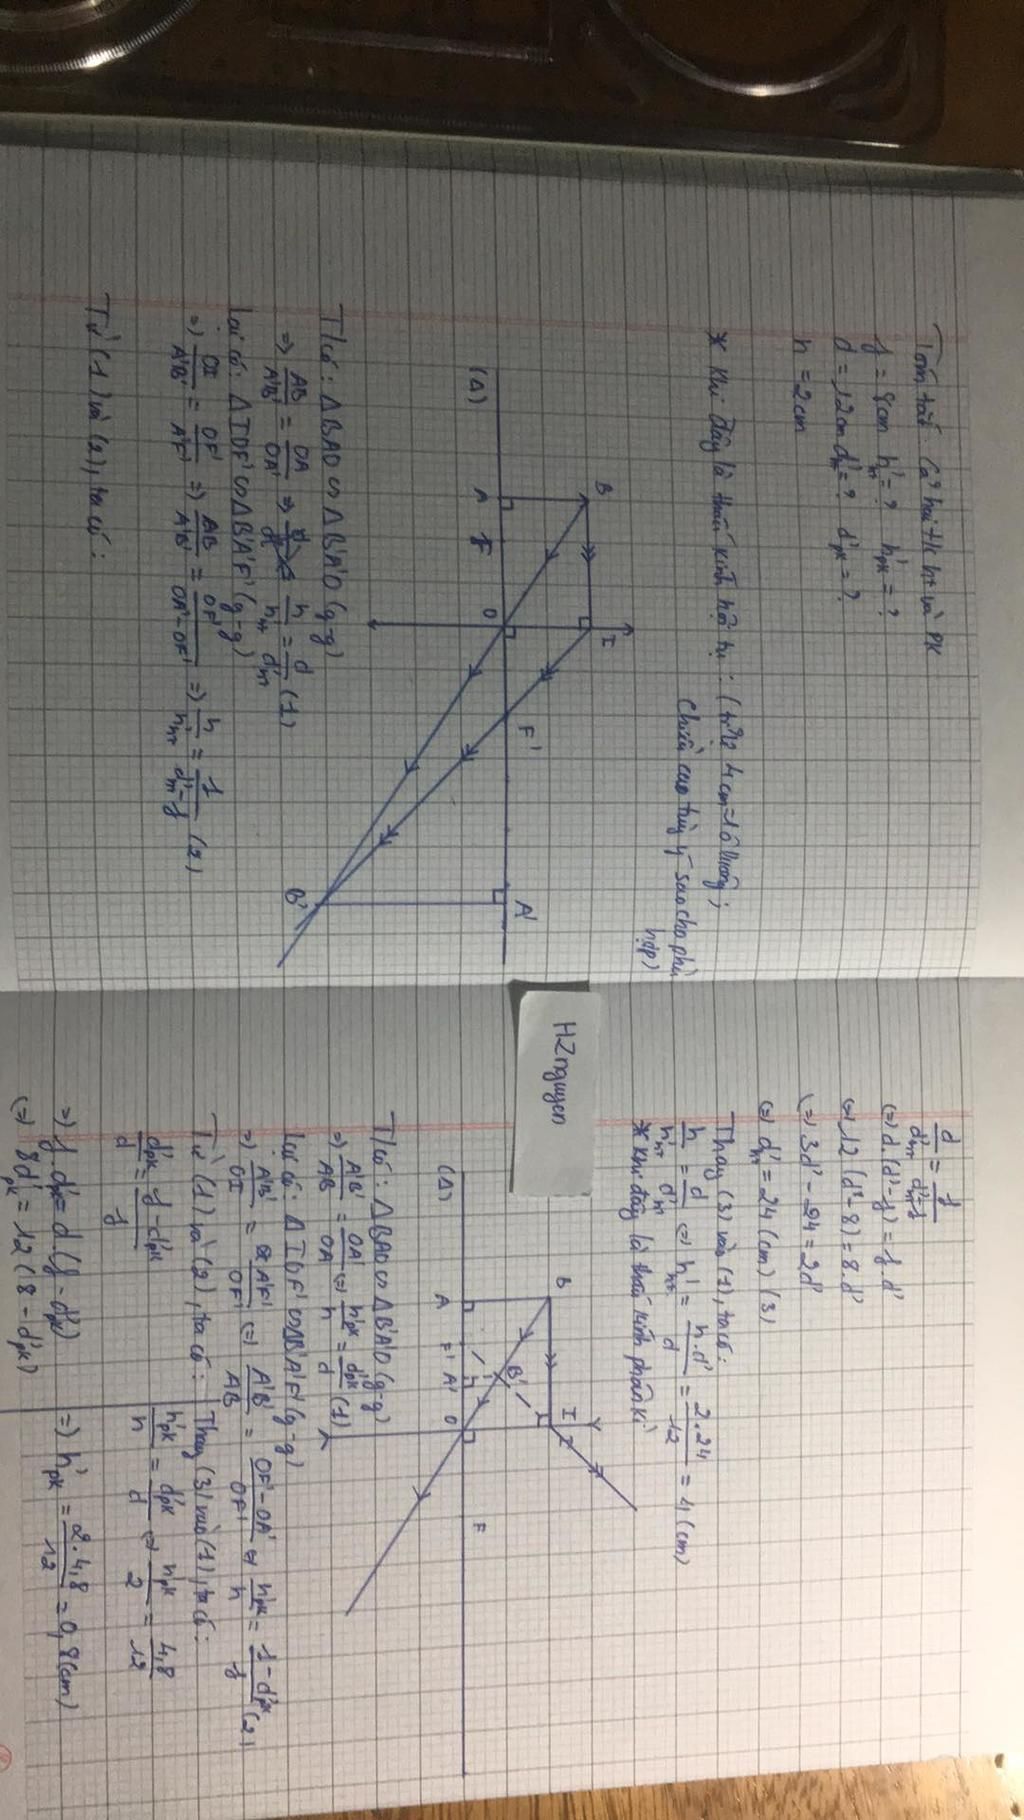 Tóm tắt Cả hai tk ht và PK
f = 8cm h'ht = ? h'pk = ?
d = 12cm d'ht = ? d'pk = ?
h = 2cm
* Khi đây là thấu kính hội tụ: (tỉ lệ 4cm = 1 ô vuông;
chiều cao tùy ý sao cho phù
hợp)
B I
(Δ) A F O F' A'
B'
T/có: ΔBAO ∽ ΔB'A'O (g-g)
=> AB/A'B' = OA/OA' => h/h'ht = d/d'ht (1)
Lại có: ΔIOF' ∽ ΔB'A'F' (g-g)
=> OI/A'B' = OF'/A'F' => AB/A'B' = OF'/OA'-OF' => h/h'ht = f/d'ht-f (2)
Từ (1) và (2), ta có:
d/d'ht = f/d'ht-f
(=) d.(d'-f) = f.d'
(=) 12(d'-8) = 8.d'
(=) 3d' - 24 = 2d'
(=) d'ht = 24 (cm) (3)
Thay (3) vào (1), ta có:
h/h'ht = d/d'ht (=) h'ht = h.d'/d = 2.24/12 = 4 (cm)
* Khi đây là thấu kính phân kì
HZnguyen
B I
B'
(Δ) A F' A' O F
T/có: ΔBAO ∽ ΔB'A'O (g-g)
=> A'B'/AB = OA'/OA (=) h'pk/h = d'pk/d (1)
Lại có: ΔIOF' ∽ ΔB'A'F' (g-g)
=> A'B'/OI = A'F'/OF' (=) A'B'/AB = OF'-OA'/OF' (=) h'pk/h = f-d'pk/f (2)
Từ (1) và (2), ta có:
d'pk/d = f-d'pk/f
=> f.d'pk = d(f-d'pk)
(=) 8d'pk = 12(8-d'pk)
Thay (3) vào (1), ta có:
h'pk/h = d'pk/d (=) h'pk/2 = 4,8/12
=> h'pk = 2.4,8/12 = 0,8(cm)